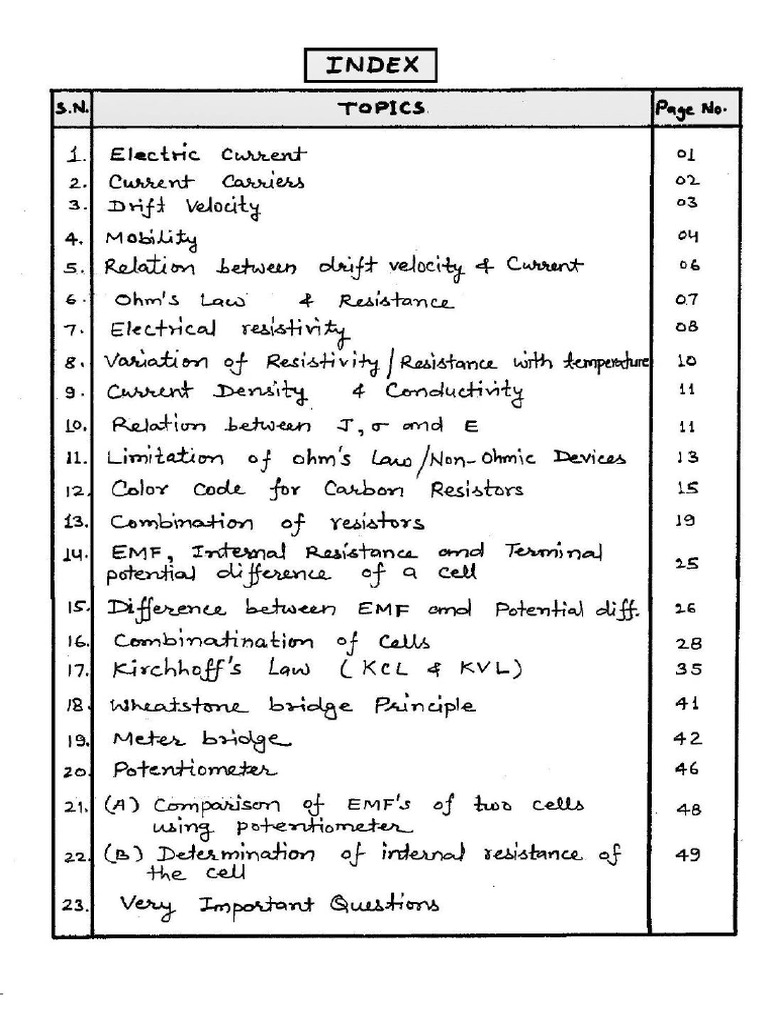 INDEX
S.N. TOPICS. Page No.
1. Electric Current 01
2. Current Carriers 02
3. Drift Velocity 03
4. Mobility 04
5. Relation between drift velocity & Current 06
6. Ohm's Law & Resistance 07
7. Electrical resistivity 08
8. Variation of Resistivity/Resistance with temperature 10
9. Current Density & Conductivity 11
10. Relation between J, σ and E 11
11. Limitation of ohm's Law/Non-Ohmic Devices 13
12. Color Code for Carbon Resistors 15
13. Combination of resistors 19
14. EMF, Internal Resistance and Terminal
potential difference of a cell 25
15. Difference between EMF and Potential diff. 26
16. Combinatination of Cells 28
17. Kirchhoff's Law (KCL & KVL) 35
18. Wheatstone bridge Principle 41
19. Meter bridge 42
20. Potentiometer 46
21. (A) Comparison of EMF's of two cells
using potentiometer 48
22. (B) Determination of internal resistance of
the cell 49
23. Very Important Questions